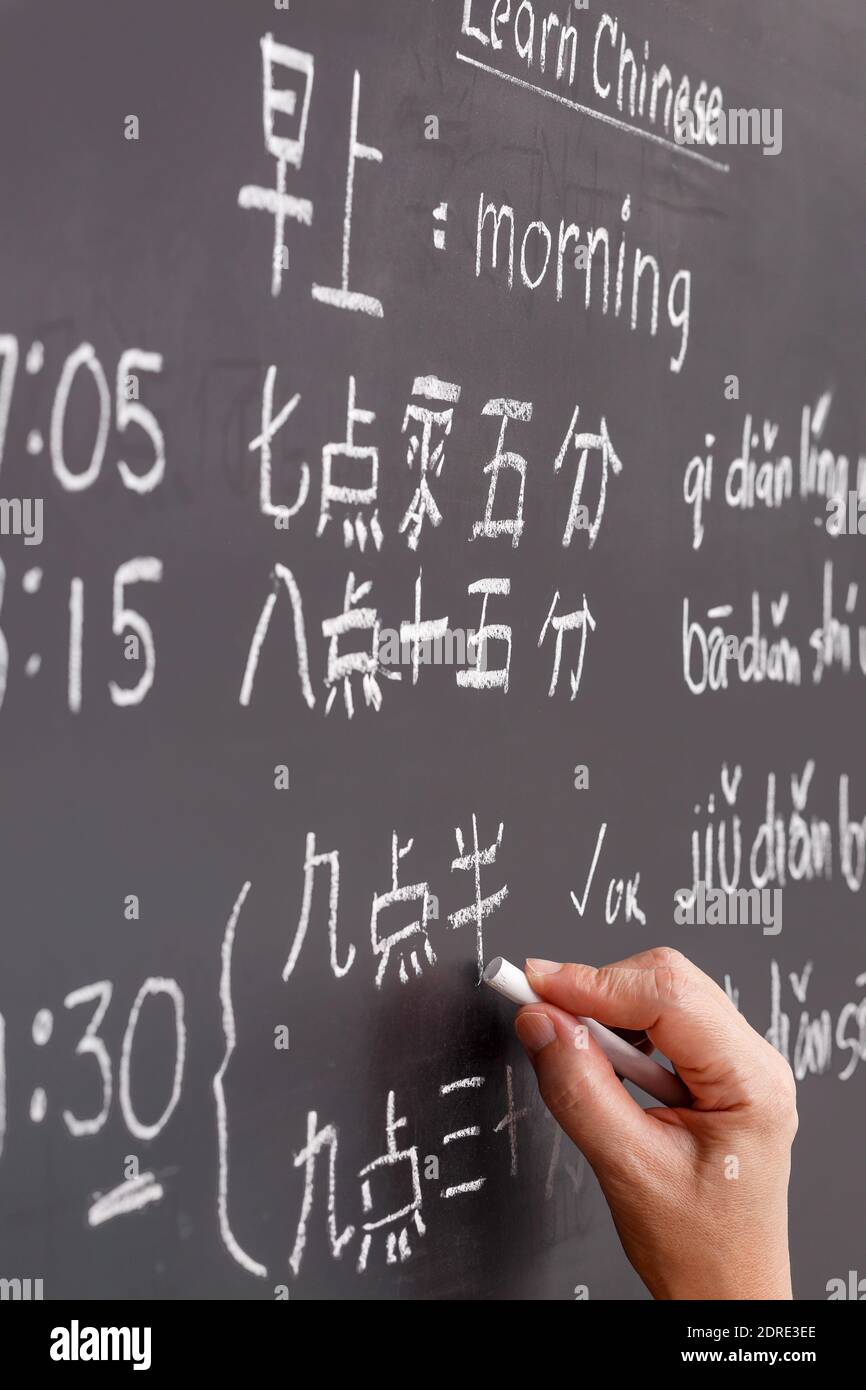 Learn Chinese
早上 : morning
:05 七点零五分 qi diǎn líng
:15 八点十五分 bā diǎn shí
九点半 √ OK jiǔ diǎn
:30
九点三十 diǎn
alamy
Image ID: 2DRE3EE
www.alamy.com